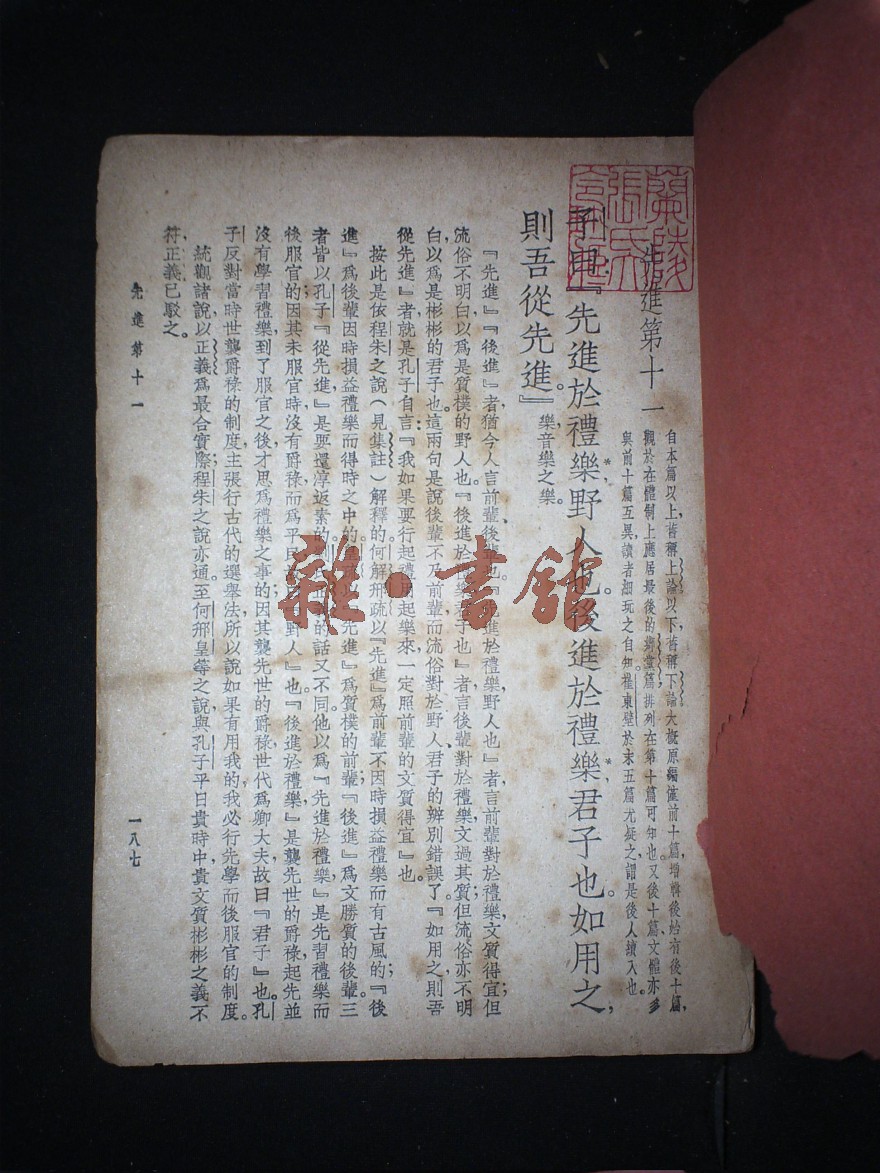 蘭陵
張氏
先進第十一
自本篇以上，皆稱上論以下，皆稱下論大概原編僅前十篇，增輯後始有後十篇，
觀於在體制上應居最後的鄉黨篇，排列在第十篇可知也。又後十篇，文體亦多
與前十篇互異，讀者細玩之自知。崔東壁於末五篇尤疑之，謂是後人續入也。
子曰：『先進於禮樂，野人也。後進於禮樂，君子也。如用之，
則吾從先進。』樂，音樂之樂。
『先進』『後進』者，猶今人言前輩後輩也。『先進於禮樂，野人也』者，言前輩對於禮樂，文質得宜；但
流俗不明白，以爲是質樸的野人也。『後進於禮樂，君子也』者，言後輩對於禮樂，文過其質；但流俗亦不明
白，以爲是彬彬的君子也。這兩句是說後輩不及前輩，而流俗對於野人、君子的辨別錯誤了。『如用之，則吾
從先進』者，就是孔子自言：『我如果要行起禮用起樂來，一定照前輩的文質得宜』也。
按此是依程朱之說（見集註）解釋的。何解邢疏以『先進』爲前輩不因時損益禮樂而有古風的；『後
進』爲後輩因時損益禮樂而得時之中的。以『先進』爲質樸的前輩；『後進』爲文勝質的後輩。三
者皆以孔子『從先進』是要還淳返素的。的話又不同，他以爲『先進於禮樂』是先習禮樂而
後服官的；因其未服官時，沒有爵祿，而爲平民，野人』也。『後進於禮樂』是襲先世的爵祿，起先並
沒有學習禮樂，到了服官之後，才思爲禮樂之事的；因其襲先世的爵祿，世代爲卿大夫，故曰『君子』也。孔
子反對當時世襲爵祿的制度，主張行古代的選舉法，所以說如果有用我的，我必行先學而後服官的制度。
統觀諸說，以正義爲最合實際；程朱之說亦通。至何邢皇等之說，與孔子平日貴時中、貴文質彬彬之義不
符，正義已駁之。
先進第十一
一八七
雜·書舘